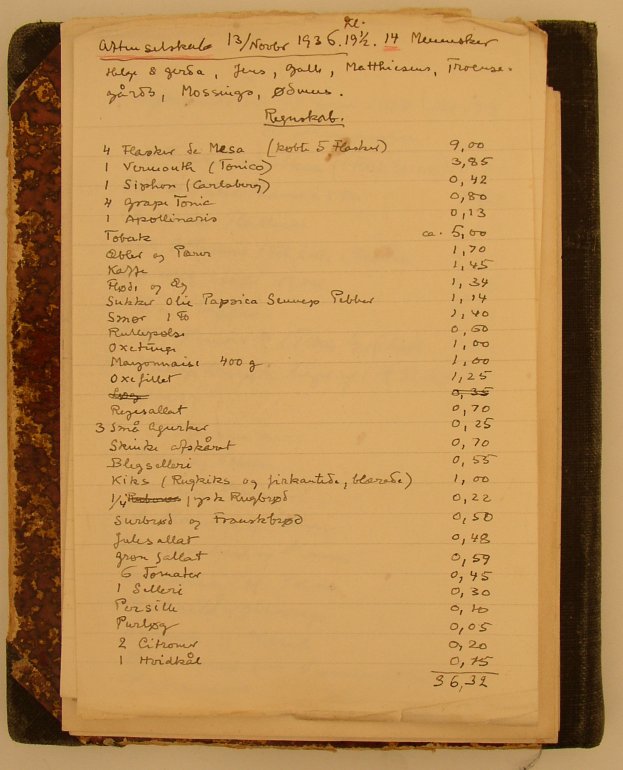 Aftenselskab 13/Novbr 1936. Kl. 19½. 14 Mennesker
Helge & Gerda, Jens, Galle, Matthiesens, Troense-
gårds, Mossings, Ødmus.
Regnskab.
4 Flasker de Mesa (købte 5 Flasker) 9,00
1 Vermouth (Tonico) 3,85
1 Siphon (Carlsberg) 0,42
4 Grape Tonic 0,80
1 Apollinaris 0,13
Tobak ca. 5,00
Æbler og Pærer 1,70
Kaffe 1,45
Fløde og Æg 1,34
Sukker Olie Paprica Sennep Pebber 1,14
Smør 1 ℔ 1,40
Rullepølse 0,60
Oxetunge 1,00
Mayonnaise 400 g 1,00
Oxefillet 1,25
0,35
Rejesallat 0,70
3 Små Agurker 0,25
Skinke afskåret 0,70
Blegselleri 0,55
Kiks (Rugkiks og firkantede, blærede) 1,00
1/4 jysk Rugbrød 0,22
Surbrød og Franskbrød 0,50
Julesallat 0,48
Grøn Sallat 0,59
6 Tomater 0,45
1 Selleri 0,30
Persille 0,10
Purløg 0,05
2 Citroner 0,20
1 Hvidkål 0,15
36,32